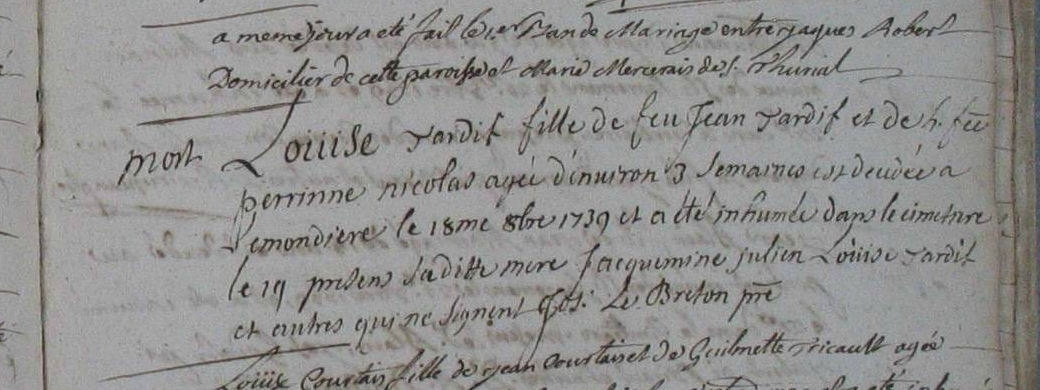 a meme jour a eté fait le 1er Ban de Mariage entre jaques Robert
Domicilier de cette paroisse et Marie Mercerais de St Thurial
mort Louise tardif fille de feu Jean tardif et de h. fee
perrinne nicolas agée d'environ 3 semaines est decedée a
le 18me 8bre 1739 et a été inhumée dans le cimetiere
le 19 presens saditte mere Jacquemine julien Louise tardif
et autres qui ne signent Jos: Le Breton pre
Louise Courtais fille de jean Courtais et de Guilmette ricault agée